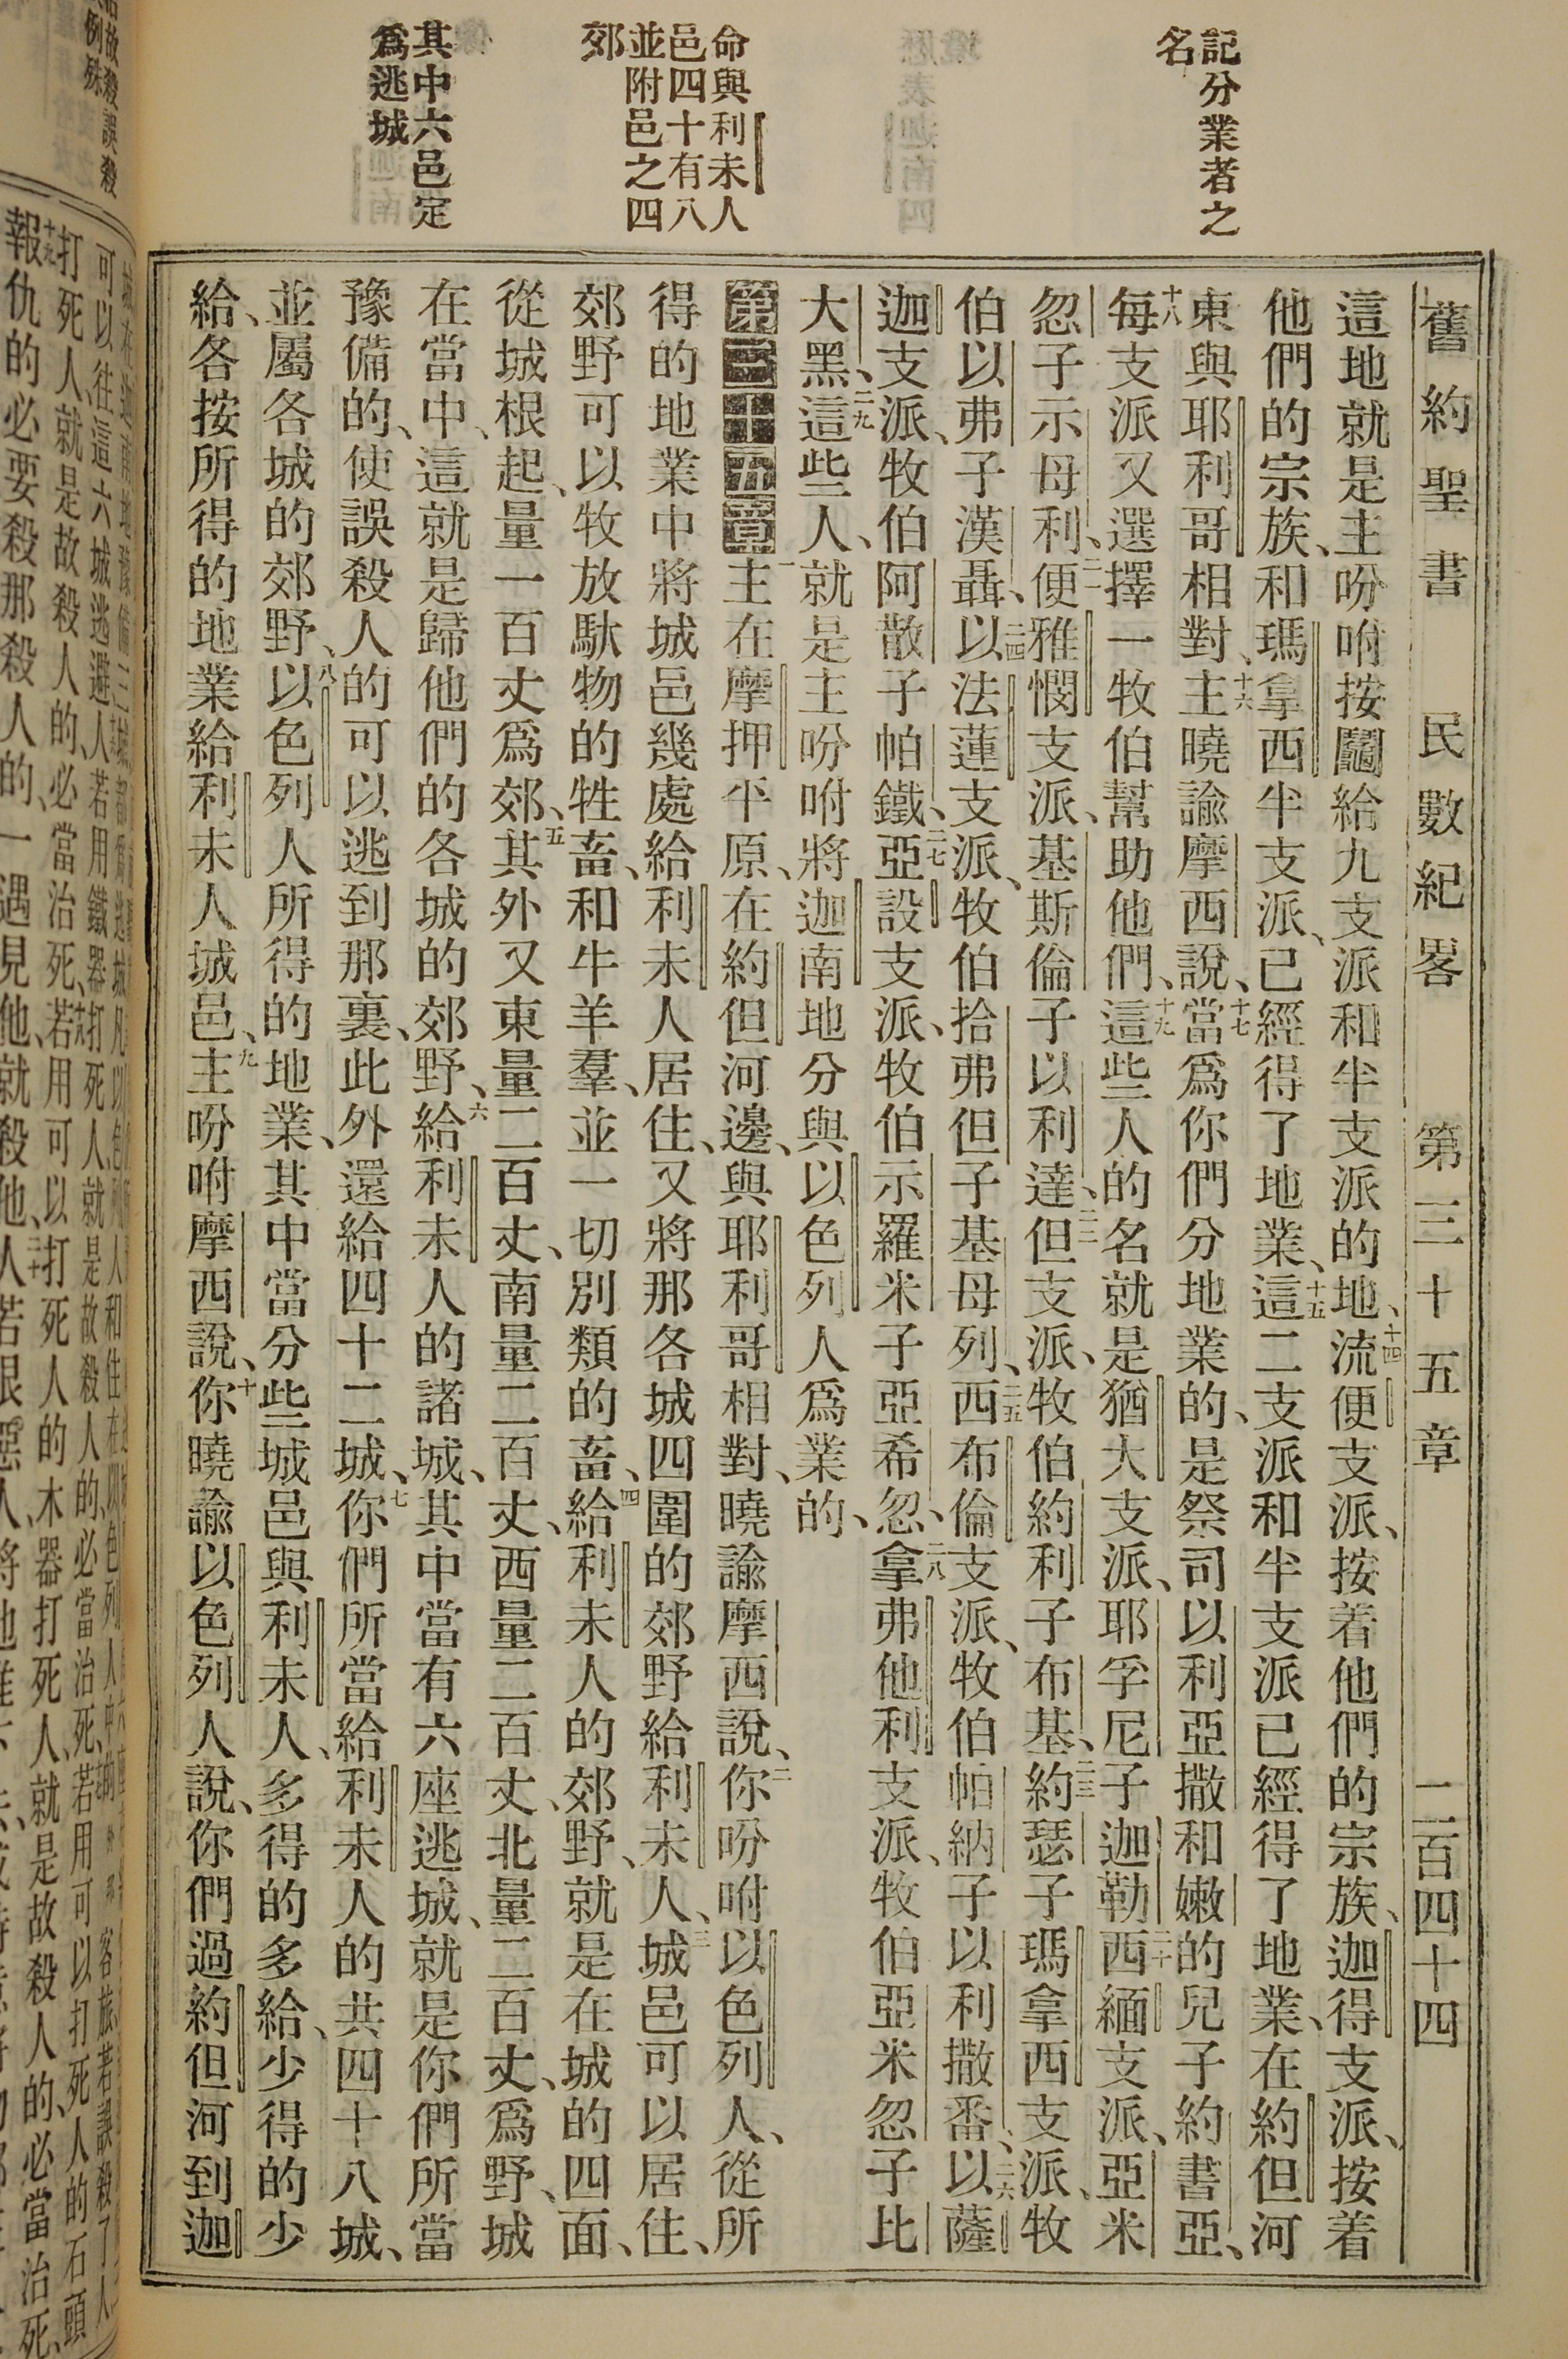 舊約聖書　民數紀畧　第三十五章　二百四十四
記分業者之
名
命與利未人
邑四十有八
並附邑之四
郊
其中六邑定
爲逃城
這地就是主吩咐按鬮給九支派和半支派的地、十四流便支派、按着他們的宗族、迦得支派、按着
他們的宗族、和瑪拿西半支派、已經得了地業、十五這二支派和半支派已經得了地業、在約但河
東與耶利哥相對、十六主曉諭摩西說、十七當爲你們分地業的、是祭司以利亞撒和嫩的兒子約書亞、
十八每支派又選擇一牧伯幫助他們、十九這些人的名就是猶大支派、耶孚尼子迦勒二十西緬支派、亞米
忽子示母利、二一便雅憫支派、基斯倫子以利達、二二但支派、牧伯約利子布基、二三約瑟子瑪拿西支派、牧
伯以弗子漢聶、二四以法蓮支派、牧伯拾弗但子基母列、二五西布倫支派、牧伯帕納子以利撒番、二六以薩
迦支派、牧伯阿散子帕鐵、二七亞設支派、牧伯示羅米子亞希忽、二八拿弗他利支派、牧伯亞米忽子比
大黑、二九這些人、就是主吩咐將迦南地分與以色列人爲業的、
第三十五章一主在摩押平原、在約但河邊、與耶利哥相對、曉諭摩西說、二你吩咐以色列人、從所
得的地業中將城邑幾處給利未人居住、又將那各城四圍的郊野給利未人、三城邑可以居住、
郊野可以牧放馱物的牲畜、和牛羊羣、並一切別類的畜、四給利未人的郊野、就是在城的四面、
從城根起、量一百丈爲郊、五其外又東量二百丈、南量二百丈、西量二百丈、北量二百丈、爲野、城
在當中、這就是歸他們的各城的郊野、六給利未人的諸城、其中當有六座逃城、就是你們所當
豫備的、使誤殺人的可以逃到那裏、此外還給四十二城、七你們所當給利未人的共四十八城、
並屬各城的郊野、八以色列人所得的地業、其中當分些城邑與利未人、多得的多給、少得的少
給、各按所得的地業給利未人城邑、九主吩咐摩西說、十你曉諭以色列人說、你們過約但河到迦